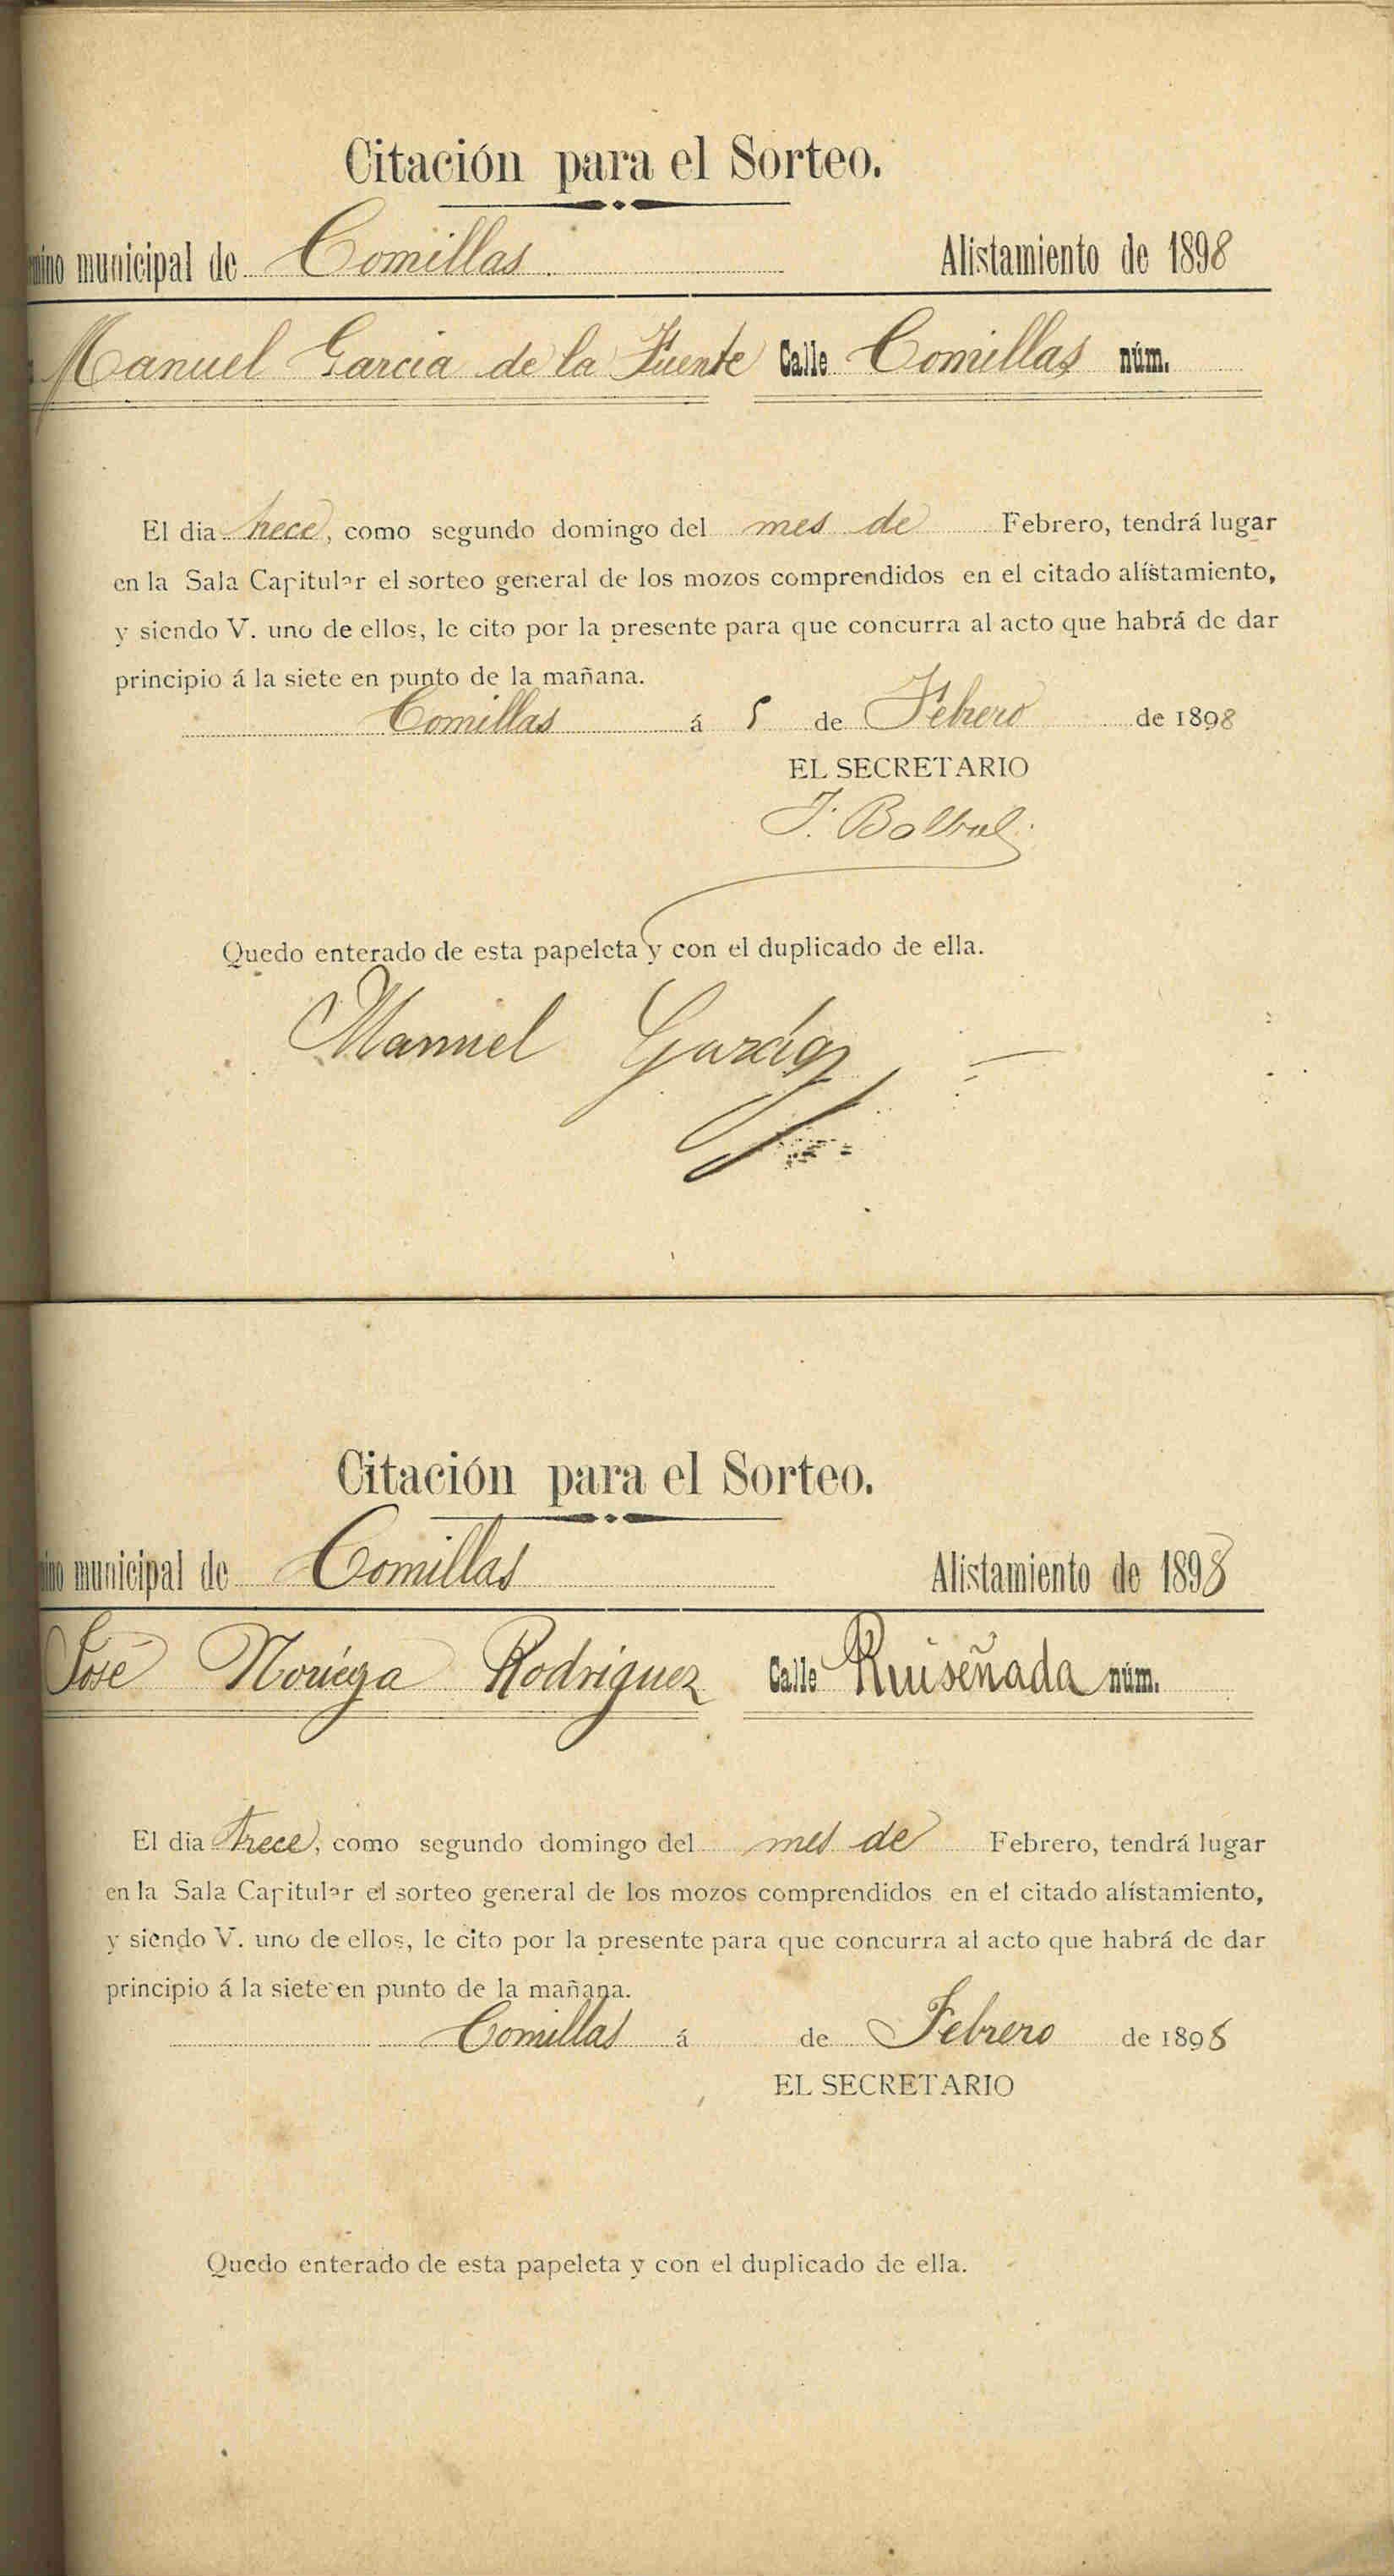 Citación para el Sorteo.
mino municipal de Comillas Alistamiento de 1898
Manuel Garcia de la Fuente Calle Comillas núm.
El dia trece, como segundo domingo del mes de Febrero, tendrá lugar
en la Sala Capitular el sorteo general de los mozos comprendidos en el citado alistamiento,
y siendo V. uno de ellos, le cito por la presente para que concurra al acto que habrá de dar
principio á la siete en punto de la mañana.
Comillas á 5 de Febrero de 1898
EL SECRETARIO
Quedo enterado de esta papeleta y con el duplicado de ella.
Manuel García
Citación para el Sorteo.
ino municipal de Comillas Alistamiento de 1898
José Noriega Rodriguez Calle Ruiseñada núm.
El dia trece, como segundo domingo del mes de Febrero, tendrá lugar
en la Sala Capitular el sorteo general de los mozos comprendidos en el citado alistamiento,
y siendo V. uno de ellos, le cito por la presente para que concurra al acto que habrá de dar
principio á la siete en punto de la mañana.
Comillas á de Febrero de 1898
EL SECRETARIO
Quedo enterado de esta papeleta y con el duplicado de ella.